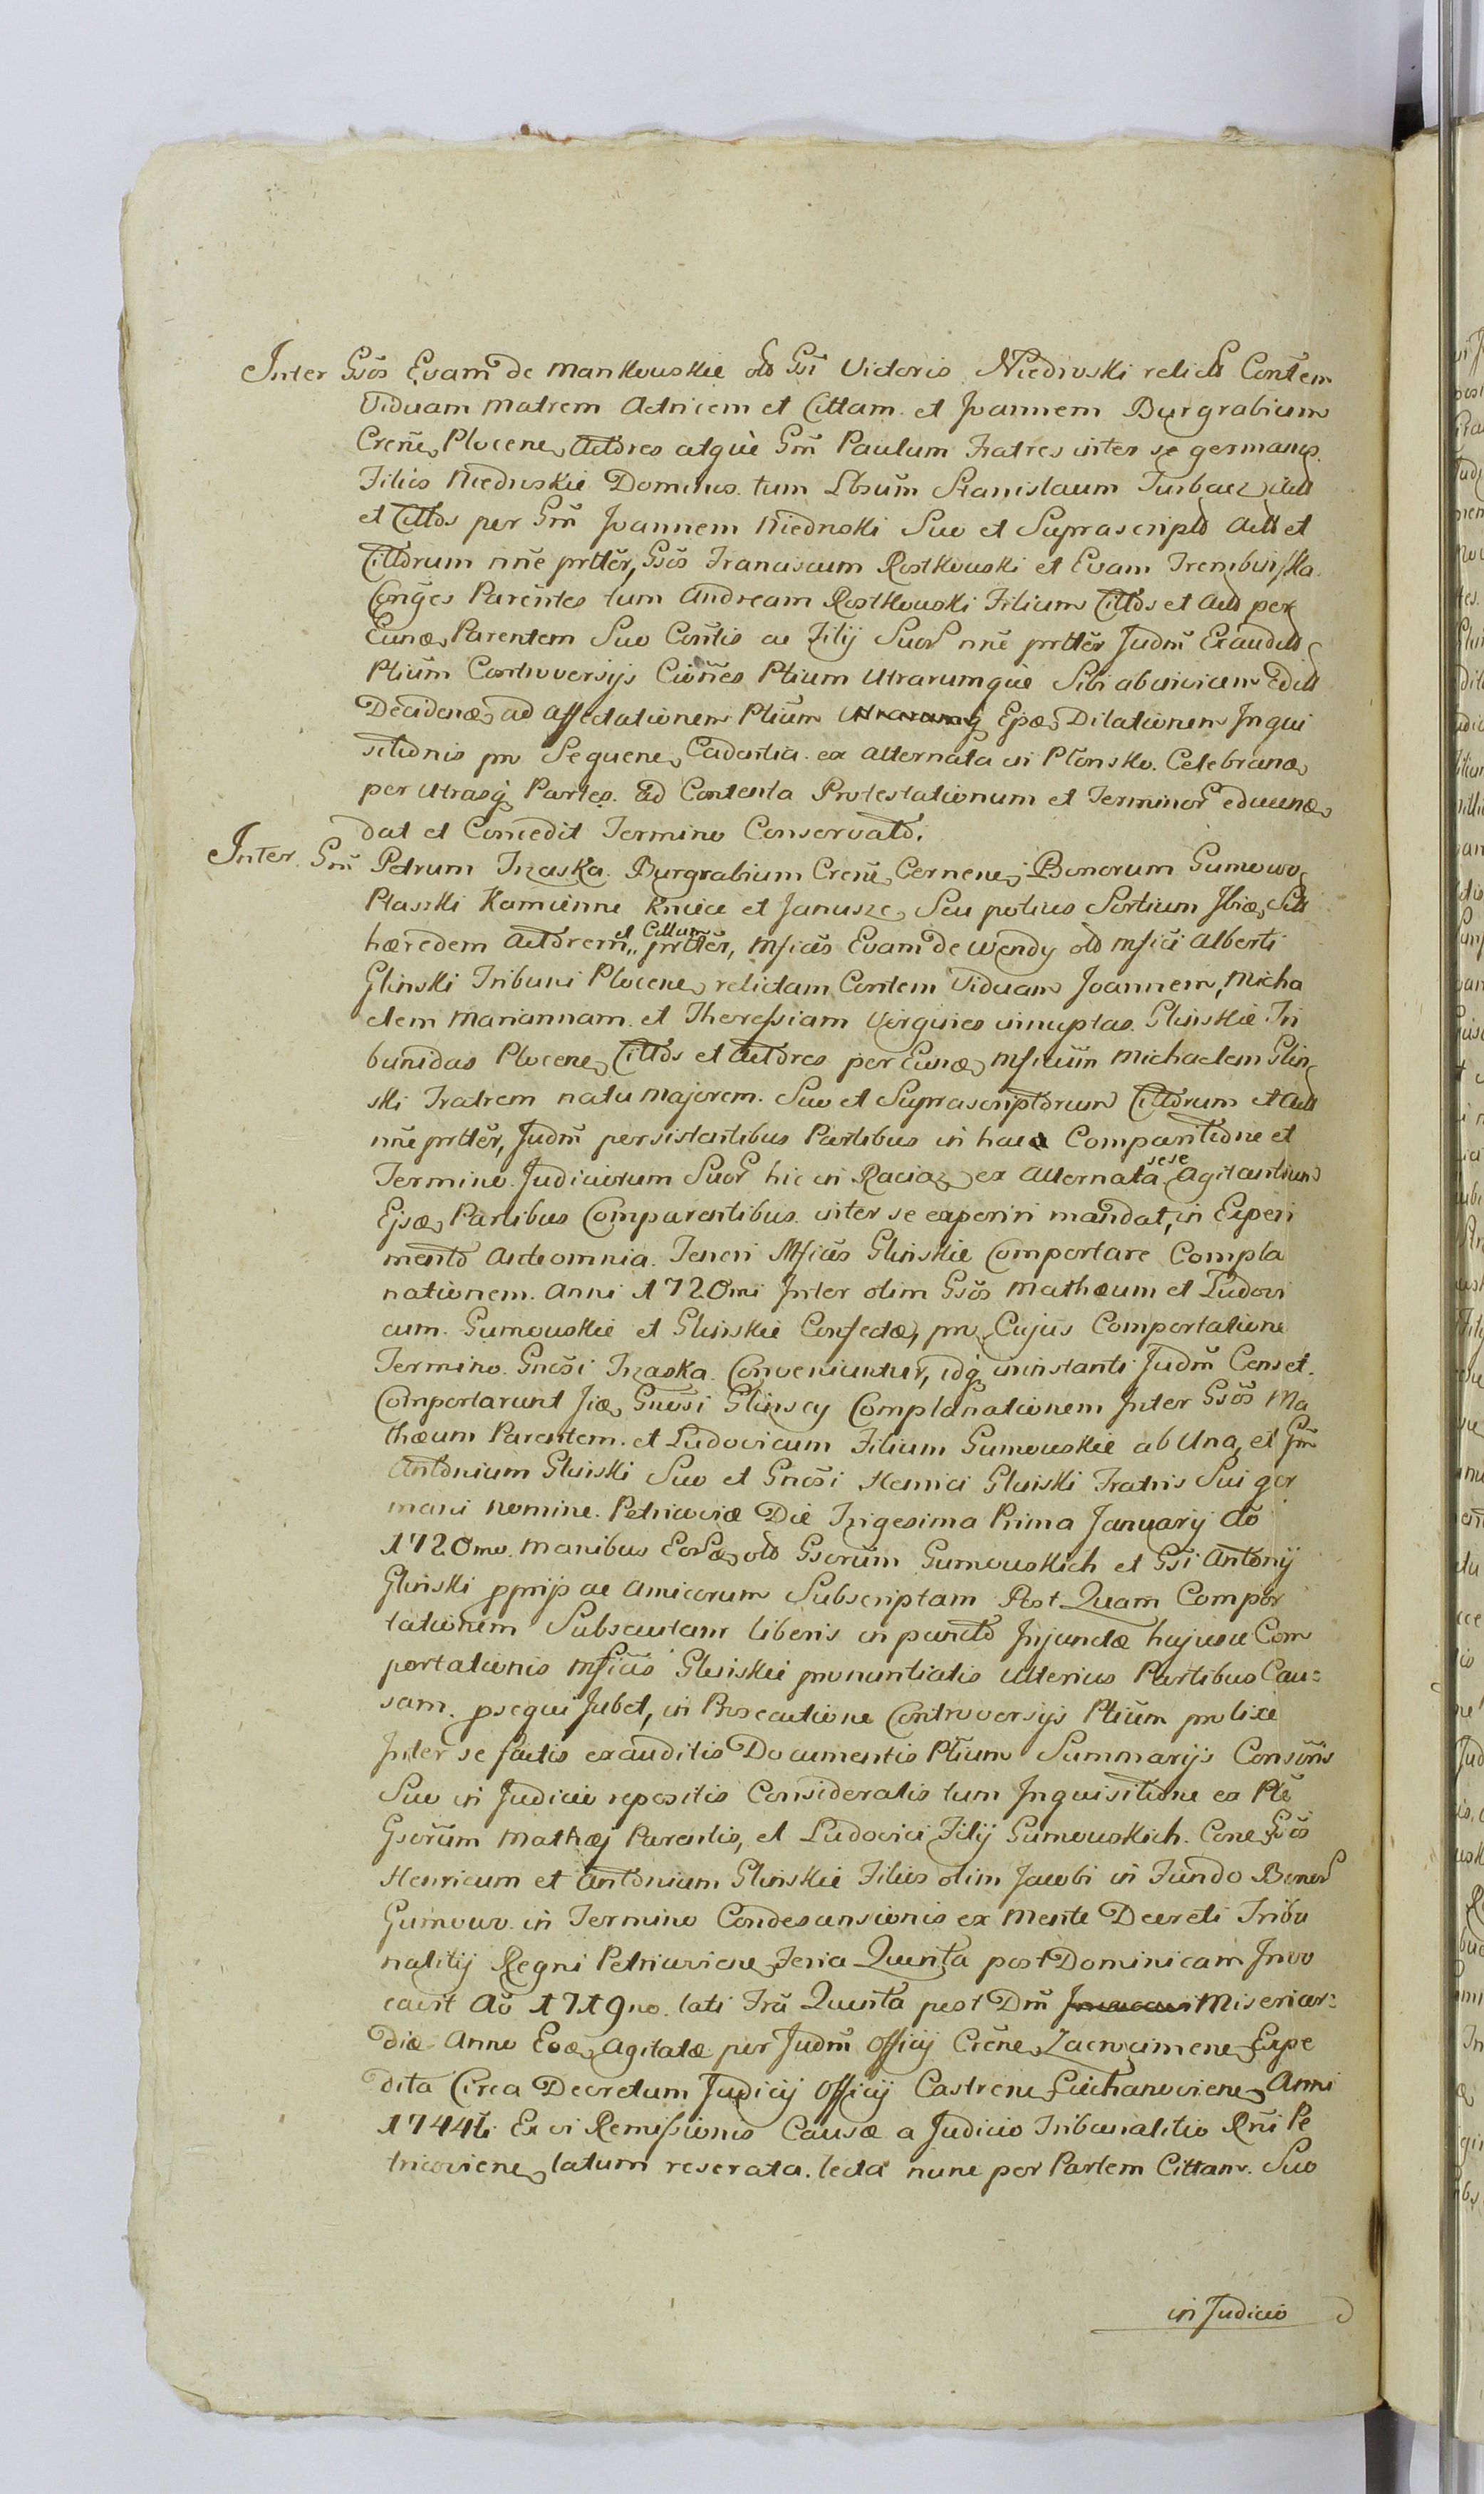 Inter Gsos Evam de Mankowskie old Gsi Victoris Niedroski relict Contem
Viduam Matrem Actricem et Cittam et Joannem Burgrabium
Crene Plocene Actores atque Gm Paulum Fratres inter se germanos
Filios Niedroskie Dominus tum Lbsum Stanislaum Turbacz
et Cittos per Gm Joannem Niedroski Suo et Suprascripto Act et
Cittorum nne prtter, Gsos Franciscum Rostkowski et Evam Trembinska
Conges Parentes tum Andream Rostkowski Filium Cittos et Act per
Eunde Parentem Suo Contis ac Filij Suor nne prtter Judm Exaudit
Ptium Controversijs Ciones Ptium Utrarumque Sibi ab invicem Edit
Decidenæ ad affectationem Ptium Utrarumq Ejsæ Dilationem Inqui
sitionis pro Sequene Cadentia ex alternata in Płonsko Celebranæ
per Utrasq Partes ad Contenta Protestationum et Terminor educenæ
dat et Concedit Termino Conservato.
Inter Gm Petrum Trzaska Burgrabium Crene Cernene Bonorum Gumowo
Ptaszki Kamienne Kmiece et Janusze Seu potius Sortium Ibiæ Sitt
hæredem Actorem et Cittum prtter, Mficas Evam de Wendy old Mfici Alberti
Glinski Tribuni Plocene relictam Contem Viduam Joannem, Micha
elem Mariannam et Theressiam Virgines innuptas Glinskie Tri
bunidas Plocene Cittos et Actores per Eunæ Mficum Michaelem Glin
ski Fratrem natu majorem Suo et Suprascriptorum Cittorum et Act
nne prtter, Judm persistentibus Partibus in hac Comparitione et
Termino Judiciorum Suor hic in Raciaz ex Alternata sese Agitantium
Ejsæ Partibus Comparentibus inter se experiri mandat, in Experi
mento Ante omnia Teneri Mficos Glinskie Comportare Compla
nationem Anni 1720mi Inter olim Gsos Mathæum et Ludovi
cum Gumowskie et Glinskie Confectæ, pro Cujus Comportatione
Termino Gnosi Trzaska Conveniuntur, idq ininstanti Judm Censet.
Comportarunt Jiæ Gnosi Glinscy Complanationem Inter Gsos Ma
thæum Parentem et Ludovicum Filium Gumowskie ab Una, et Gm
Antonium Glinski Suo et Gnosi Henrici Glinski Fratris Sui ger
mani nomine Petricoviæ Die Trigesima Prima January Ao
1720mo Manibus Eorsæ old Gsorum Gumowskich et Gsi Antonij
Glinski pprijs ac Amicorum Subscriptam Post Quam Compor
tationem Subsecutam liberis in puncto Injunctæ hujusce Com
portationis Mficis Glinskie pronuntiatis ulterius Partibus Cau=
sam psequi Jubet, in Prosecutione Controversijs Ptium prolixe
Inter se factis exauditis Documentis Ptium Summarijs Consoris
Suo in Judicio repositis Consideratis tum Inquisitione ex Pte
Gsorum Mathæj Parentis, et Ludovici Filij Gumowskich Cone Gsos
Henricum et Antonium Glinskie Filios olim Jacobi in Fundo Bonor
Gumowo in Termino Condescensionis ex Mente Decreti Tribu
nalitij Regni Petricoviene Feria Quinta post Dominicam Invo
cavit Ao 1719no lati Fra Quinta post Dm Invocavit Misericor=
diæ Anno Eoæ Agitatæ per Judm Officij Crene Zacrocimene Expe
dita Circa Decretum Judicij Officij Castrene Ciechanoviene Anni
1744ti Ex vi Remissionis Causæ a Judicio Tribunalitio Rni Pe
tricoviene latum reserata lecta nunc per Partem Cittam Suo
in Judicio